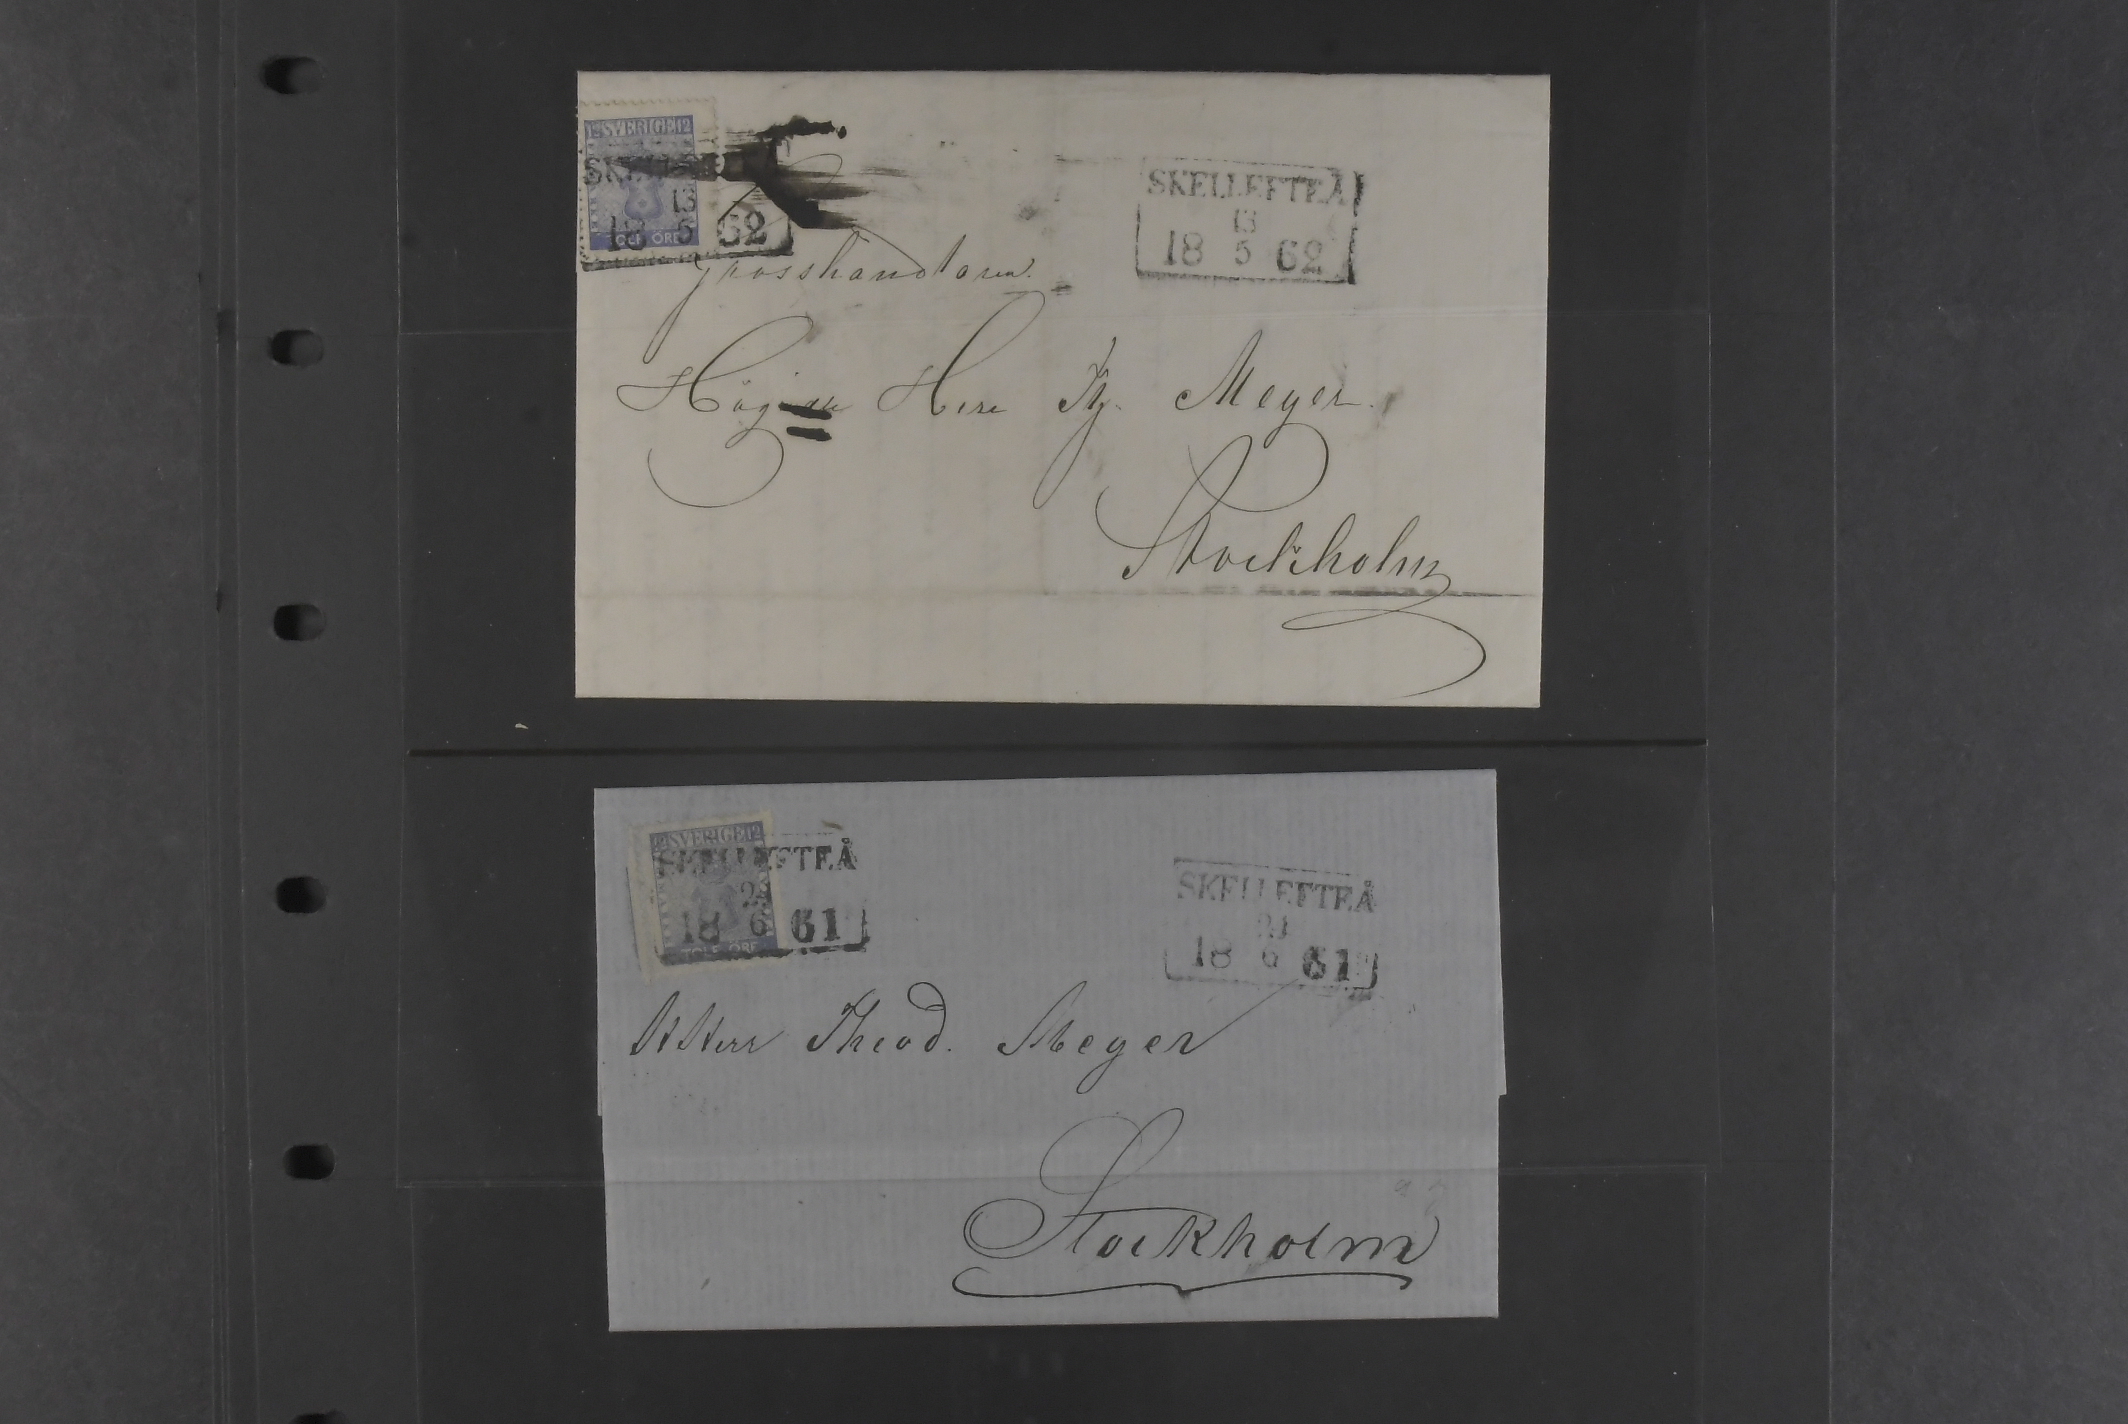 12 SVERIGE 12
SKELLEFTEÅ
13
18 5 62
TOLF ÖRE
SKELLEFTEÅ
13
18 5 62
Grosshandlaren
Herr Th. Meyer.
Stockholm
12 SVERIGE 12
SKELLEFTEÅ
18 6 61
TOLF ÖRE
SKELLEFTEÅ
18 6 61
HHerr Theod. Meyer
Stockholm